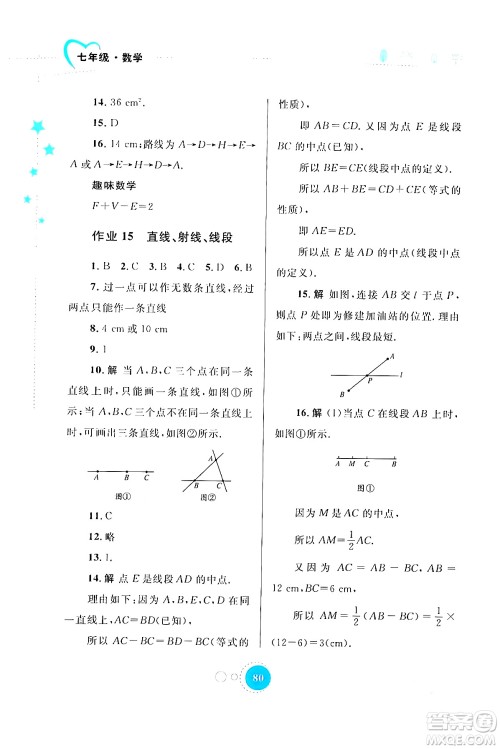 七年级·数学
14. 36 cm².
15. D
16. 14 cm;路线为 A→D→H→E→
A 或者 A→E→H→D→A.
趣味数学
F+V-E=2
作业 15 直线、射线、线段
1. B 2. C 3. D 4. B 5. C 6. B
7. 过一点可以作无数条直线 过
两点只能作一条直线
8. 4 cm 或 10 cm
9. 1
10. 解 当 A,B,C 三个点在同一条
直线上时,只能画一条直线(如图①所
示);当 A,B,C 三个点不在同一直线上时,
可画出三条直线,如图②所示.
A B C
图①
A
B C
图②
11. C
12. 略
13. 1
14. 解 点 E 是线段 AD 的中点.
理由如下:因为 AC=BD(已知),
所以 AC-BC=BD-BC(等式的
性质),
即 AB=CD. 又因为点 E 是线段
BC 的中点(已知),
所以 BE=CE(线段中点的定义).
所以 AB+BE=CD+CE(等式的
性质).
即 AE=ED.
所以点 E 是 AD 的中点(线段中点
的定义).
15. 解 如图,连接 AB 交 l 于点 P,
则点 P 处即为修建加油站的位置. 理由
如下:两点之间,线段最短.
A
P
l
B
16. 解 (1)当点 C 在线段 AB 上
时,如图①所示.
A M C B
图①
因为 M 是 AC 的中点,
所以 AM=1/2 AC.
又因为 AC=AB-BC,AB=
12 cm,BC=6 cm,
所以 AM=1/2(AB-BC)=1/2×
(12-6)=3(cm).
80